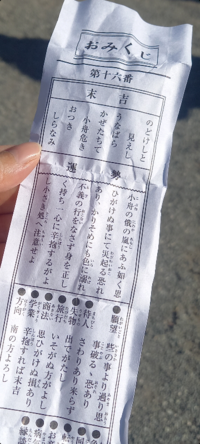 おみくじ
第十六番
末吉
のどけしと
見えし
うなばら
かぜたちて
小舟危き
おつき
しらなみ
運勢
小舟の俄の嵐にあふ如く思
ひがけぬ事にて災起る恐れ
あり、かりそめにも色に溺れ
不義の行をなさず身を正し
く持ち、心に辛抱するがよ
し小さき処へ注意せよ
●願望 些の事より過り思
事破る、恐あり
●待人 さわりあり来らず
●失物 出でがたし
●旅行 いそがぬ方がよし
●商法 思ひがけぬ損あり
●学業 辛抱すれば末吉
●方向 南の方よろし